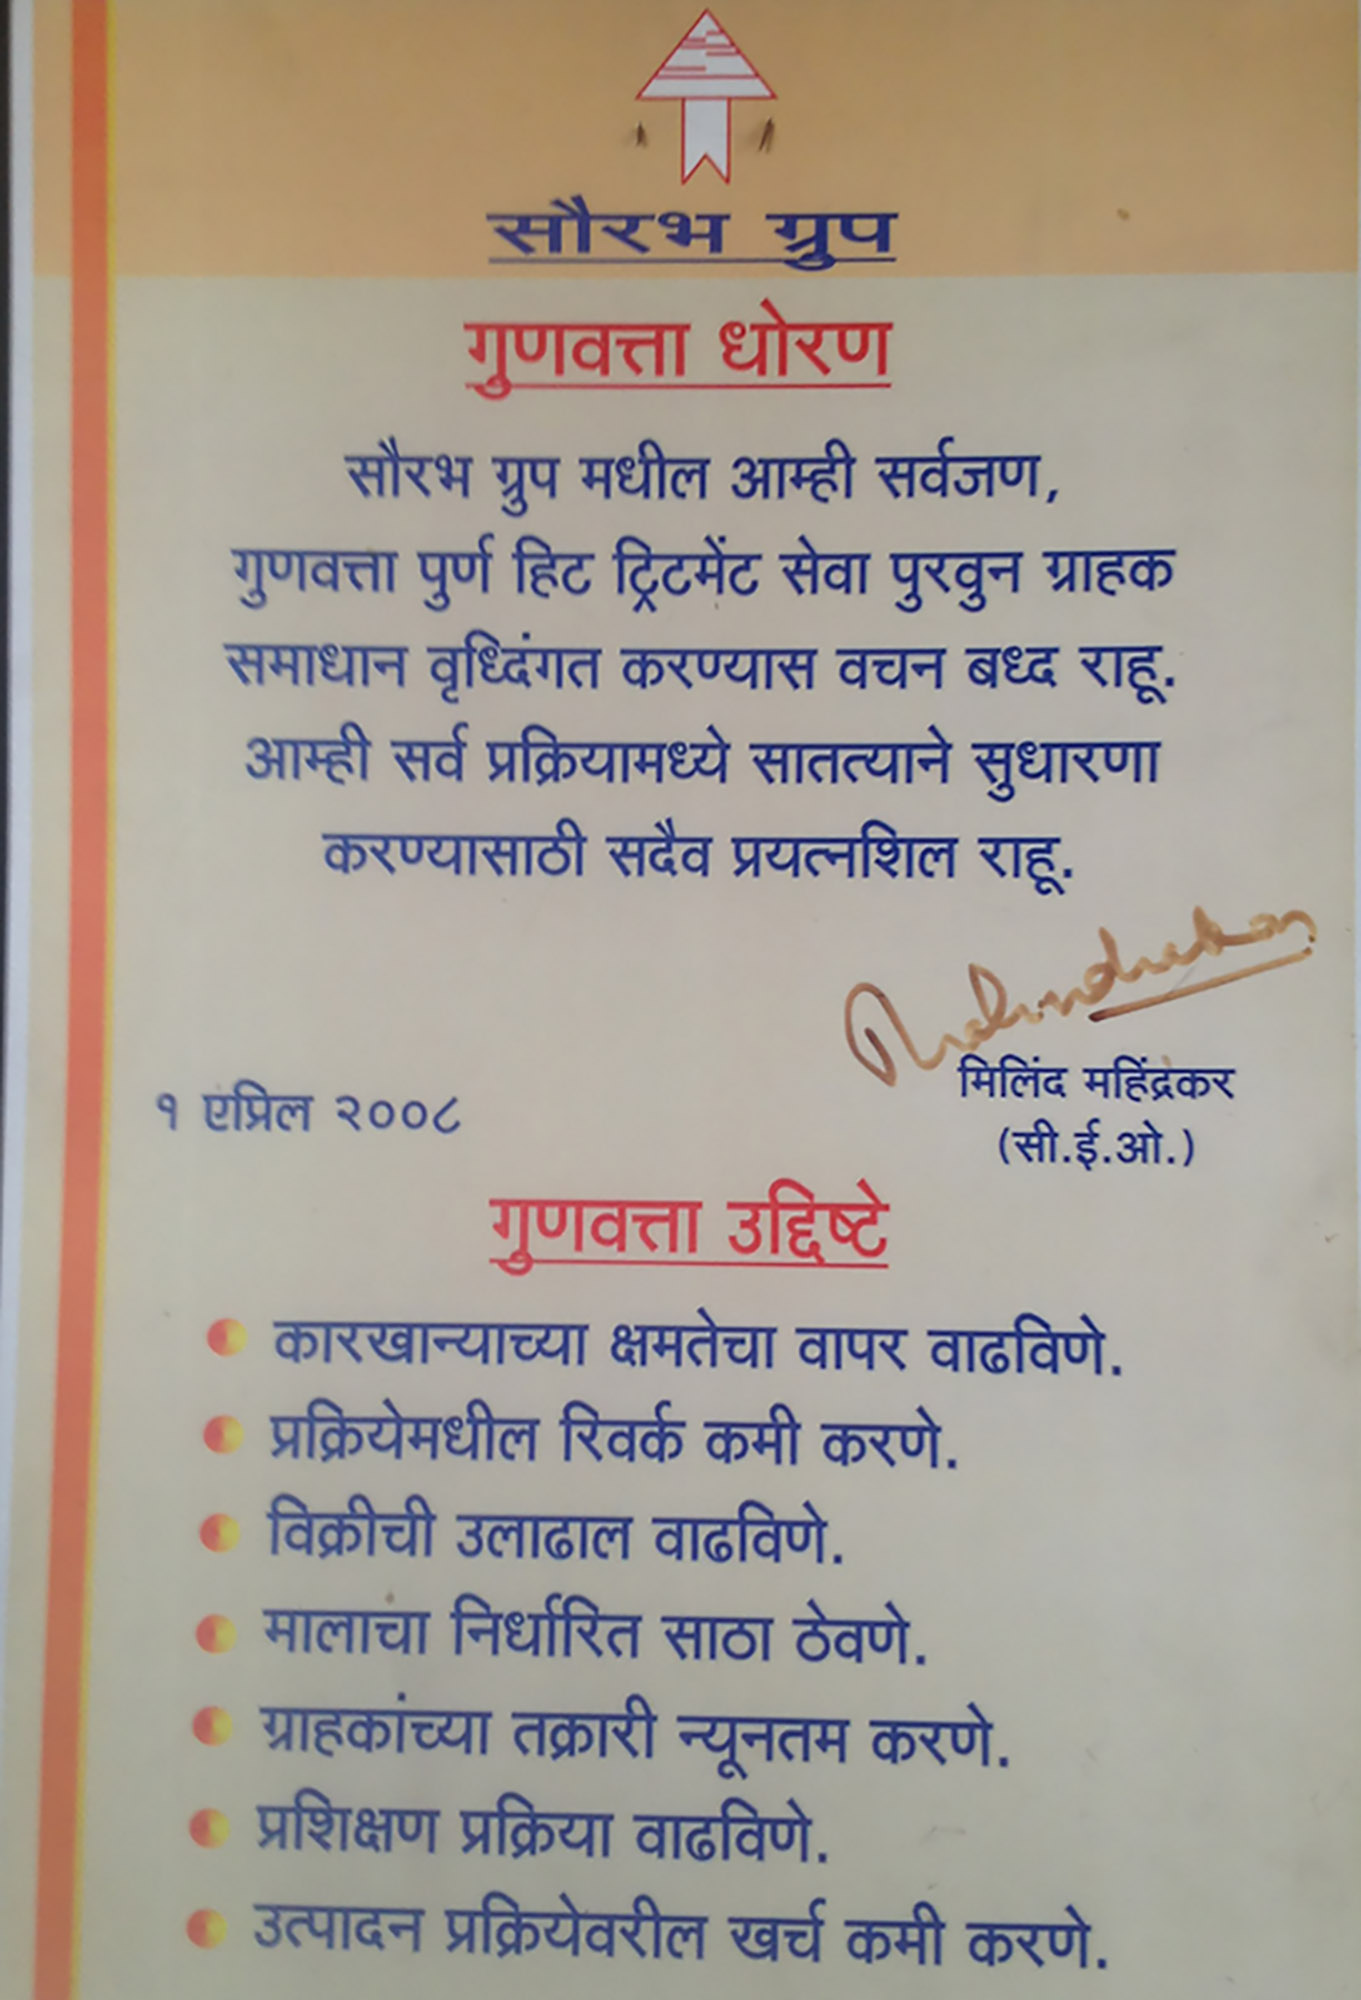 सौरभ ग्रुप
गुणवत्ता धोरण
सौरभ ग्रुप मधील आम्ही सर्वजण,
गुणवत्ता पुर्ण हिट ट्रिटमेंट सेवा पुरवुन ग्राहक
समाधान वृध्दिंगत करण्यास वचन बध्द राहू.
आम्ही सर्व प्रक्रियामध्ये सातत्याने सुधारणा
करण्यासाठी सदैव प्रयत्नशिल राहू.
मिलिंद महिंद्रकर
१ एप्रिल २००८
(सी.ई.ओ.)
गुणवत्ता उद्दिष्टे
कारखान्याच्या क्षमतेचा वापर वाढविणे.
प्रक्रियेमधील रिवर्क कमी करणे.
विक्रीची उलाढाल वाढविणे.
मालाचा निर्धारित साठा ठेवणे.
ग्राहकांच्या तक्रारी न्यूनतम करणे.
प्रशिक्षण प्रक्रिया वाढविणे.
उत्पादन प्रक्रियेवरील खर्च कमी करणे.